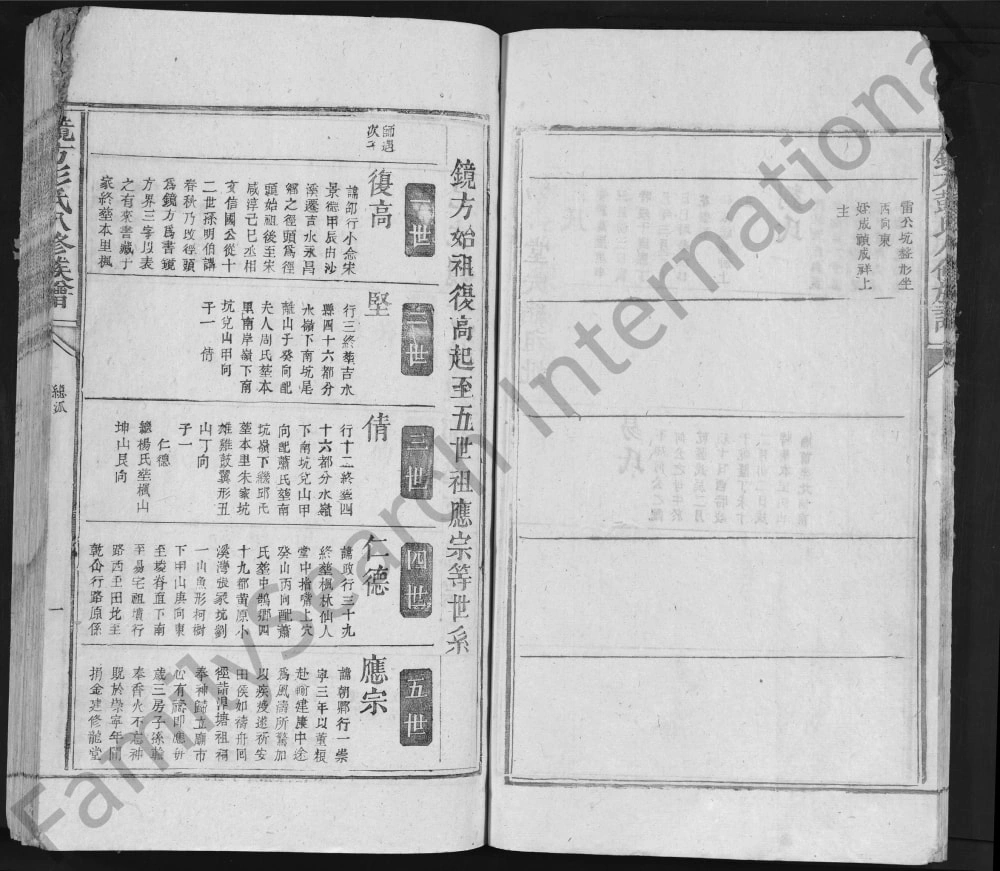 雷公坑蝦形坐
丙向東
妣成顕成祥上
主
鏡方始祖復高起至五世祖應宗等世系
一世
復高
諱郎行小念宋
景德甲辰由沙
溪遷吉水永昌
鄉之徑頭為徑
頭始祖後至宋
咸淳己巳丞相
文信國公從十
二世孫明伯講
春秋乃改徑頭
為鏡方為書鏡
方界三字以表
之有來書藏于
家終塟本里楓
二世
堅
行三終塟吉水
縣四十六都分
水嶺下南坑尾
離山子癸向配
夫人周氏塟本
里南岸嶺下南
坑兌山甲向
子一 倩
三世
倩
行十二終塟四
十六都分水嶺
下南坑兌山甲
向配蕭氏塟南
坑嶺下繼邱氏
塟本里朱家坑
雄雞鼓翼形丑
山丁向
子一
仁德
繼楊氏塟楓山
坤山艮向
四世
仁德
諱政行三十九
終塟楓林仙人
堂中指嘴上穴
癸山丙向配蕭
氏塟中鵠鄉四
十九都黄原小
溪灣張家坑劉
一山魚形柯樹
下甲山庚向東
至墳脊直下南
至易宅祖墳行
路西至田北至
乾亥行路原係
五世
應宗
諱朝鄴行一崇
寧三年以董根
赴輸建康中途
為風濤所驚加
以疾疫進祈安
田侯如禱舟回
徑請湴塘祖福
奉神歸立廟市
心有禱即應每
歲三房子孫輪
奉香火不忘神
貺於崇寧年間
捐金建修龍堂
鏡方彭氏八修族譜
總派
一